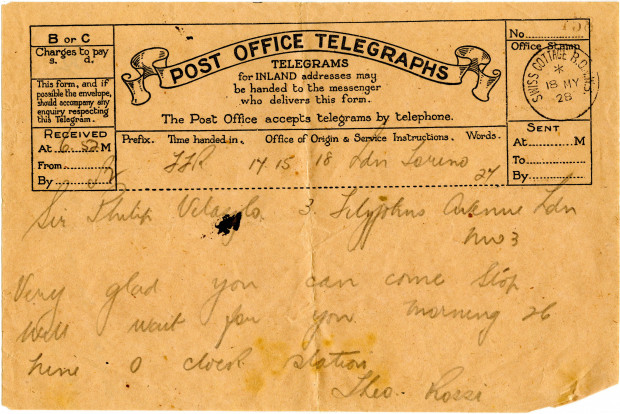 B or C
Charges to pay
s. d.
This form, and if
possible the envelope,
should accompany any
enquiry respecting
this Telegram.
RECEIVED
At 6.52 M
From
By
POST OFFICE TELEGRAPHS
TELEGRAMS
for INLAND addresses may
be handed to the messenger
who delivers this form.
The Post Office accepts telegrams by telephone.
Prefix. Time handed in. Office of Origin & Service Instructions. Words.
17 15 18 Ldn 27
No.
Office Stamp
SWISS COTTAGE B.O. N.W.3
18 MY
28
SENT
At M
To
By
Sir Philip 3 Avenue Ldn
NW3
Very glad you can come stop
Will wait for you morning 26
nine O clock station
Theo Rossi